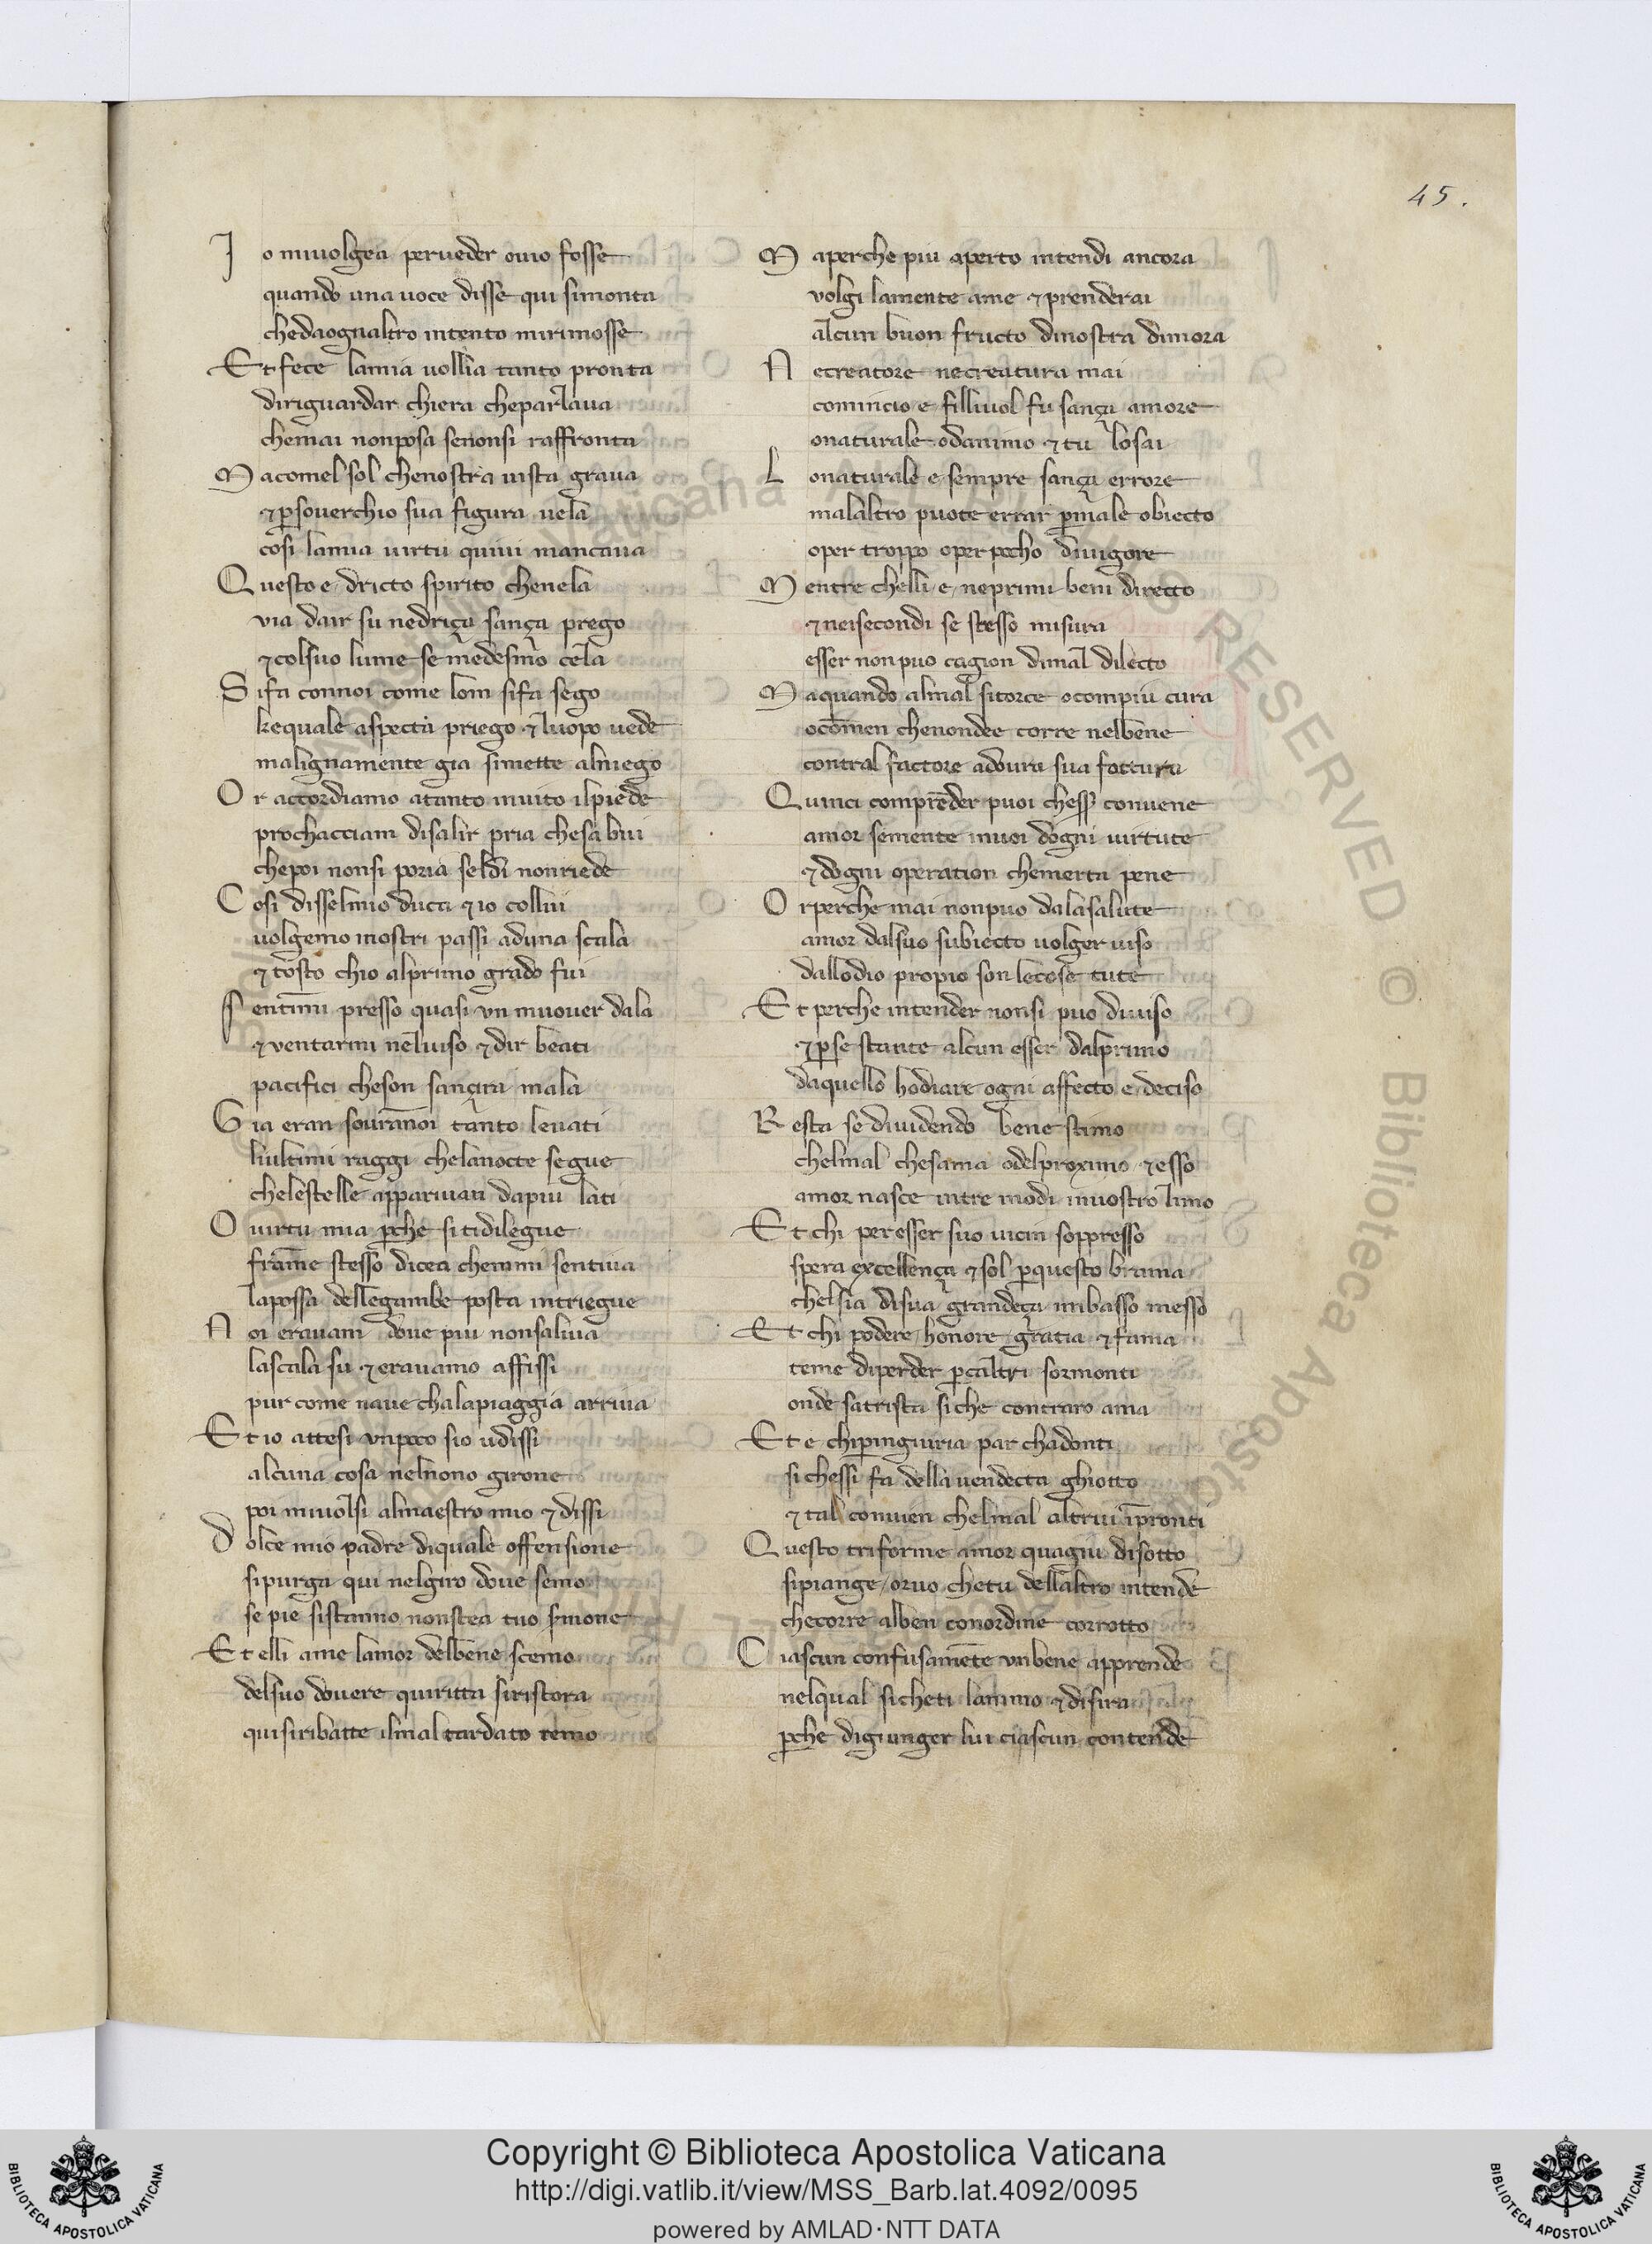 45.
I o miuolgea perueder ouio fosse
quando una uoce disse qui simonta
chedaognaltro intento mirimosse
Et fece lamia uollia tanto pronta
diriguardar chiera cheparlaua
chemai nonposa senonsi raffronta
M acomel sol chenostra uista graua
⁊ ꝑsouerchio sua figura uela
cosi lamia uirtu quiui mancaua
Q uesto e dricto spirito chenela
via dair su nedriça sança prego
⁊ colsuo lume se medesmo cela
S ifa connoi come lom sifa sego
kequale aspecta priego ⁊ luopo uede
malignamente gia simette alniego
O r accordiamo atanto inuito ilpiede
prochacciam disalir pria chesabui
chepoi nonsi poria seldi nonriede
C osi disselmio duca ⁊ io collui
uolgemo inostri passi aduna scala
⁊ tosto chio alprimo grado fui
S entimi presso quasi vn muouer dala
⁊ ventarmi neluiso ⁊ dir beati
pacifici cheson sançira mala
G ia eran souranoi tanto leuati
liultimi raggi chelanocte segue
chelestelle appariuan dapiu lati
O uirtu mia ꝑche si tidilegue
frame stesso dicea chemmi sentiua
lapossa dellegambe posta intriegue
N oi erauam doue piu nonsaliua
lascala su ⁊ erauamo affissi
pur come naue chalapiaggia arriua
Et io attesi vnpoco sio udissi
alcuna cosa nelnono girone
poi miuolsi almaestro mio ⁊ dissi
D olce mio padre diquale offensione
sipurga qui nelgiro doue semo
se pie sistanno nonstea tuo ẜmone
Et elli ame lamor delbene scemo
delsuo douere quiritta siristora
quisiribatte ilmal tardato remo
M aperche piu aperto intendi ancora
volgi lamente ame ⁊ prenderai
alcun buon fructo dinostra dimora
N ecreatore necreatura mai
comincio e filliuol fu sança amore
onaturale odanimo ⁊ tu losai
L onaturale e sempre sança errore
malaltro puote errar ꝑmale obiecto
oper troppo oper pocho diuigore
M entre chelli e neprimi beni directo
⁊ neisecondi se stesso misura
esser nonpuo cagion dimal dilecto
M aquando almal sitorce ocompiu cura
ocomen chenondee corre nelbene
contral factore adoura sua fattura
Q uinci comprēder puoi chess conuene
amor semente inuoi dogni uirtute
⁊ dogni operation chemerta pene
O rperche mai nonpuo dalasalute
amor dalsuo subiecto uolger uiso
dallodio propio son lecose tute
Et perche intender nonsi puo diuiso
⁊ ꝑse stante alcun esser dalprimo
daquello hodiare ogni affecto e deciso
R esta se diuidendo bene stimo
chelmal chesama odelproximo ⁊ esso
amor nasce intre modi inuostro limo
Et chi per esser suo uicin soppresso
spera excellença ⁊ sol ꝑquesto brama
chelsia disua grandeça imbasso messo
Et chi podere honore gratia ⁊ fama
teme diperder ꝑcaltri sormonti
onde satrista siche contraro ama
Et e chiꝑingiuria par chadonti
si chessi fa della uendecta ghiotto
⁊ tal conuien chelmal altrui īpronti
Q uesto triforme amor quagiu disotto
sipiange / oruo chetu dellaltro intende
checorre alben conordine corrotto
C iascun confusamēte vnbene apprende
nelqual sicheti lanimo ⁊ disira
ꝑche digiunger lui ciascun contende
Copyright © Biblioteca Apostolica Vaticana
http://digi.vatlib.it/view/MSS_Barb.lat.4092/0095
powered by AMLAD·NTT DATA
BIBLIOTECA APOSTOLICA VATICANA
BIBLIOTECA APOSTOLICA VATICANA